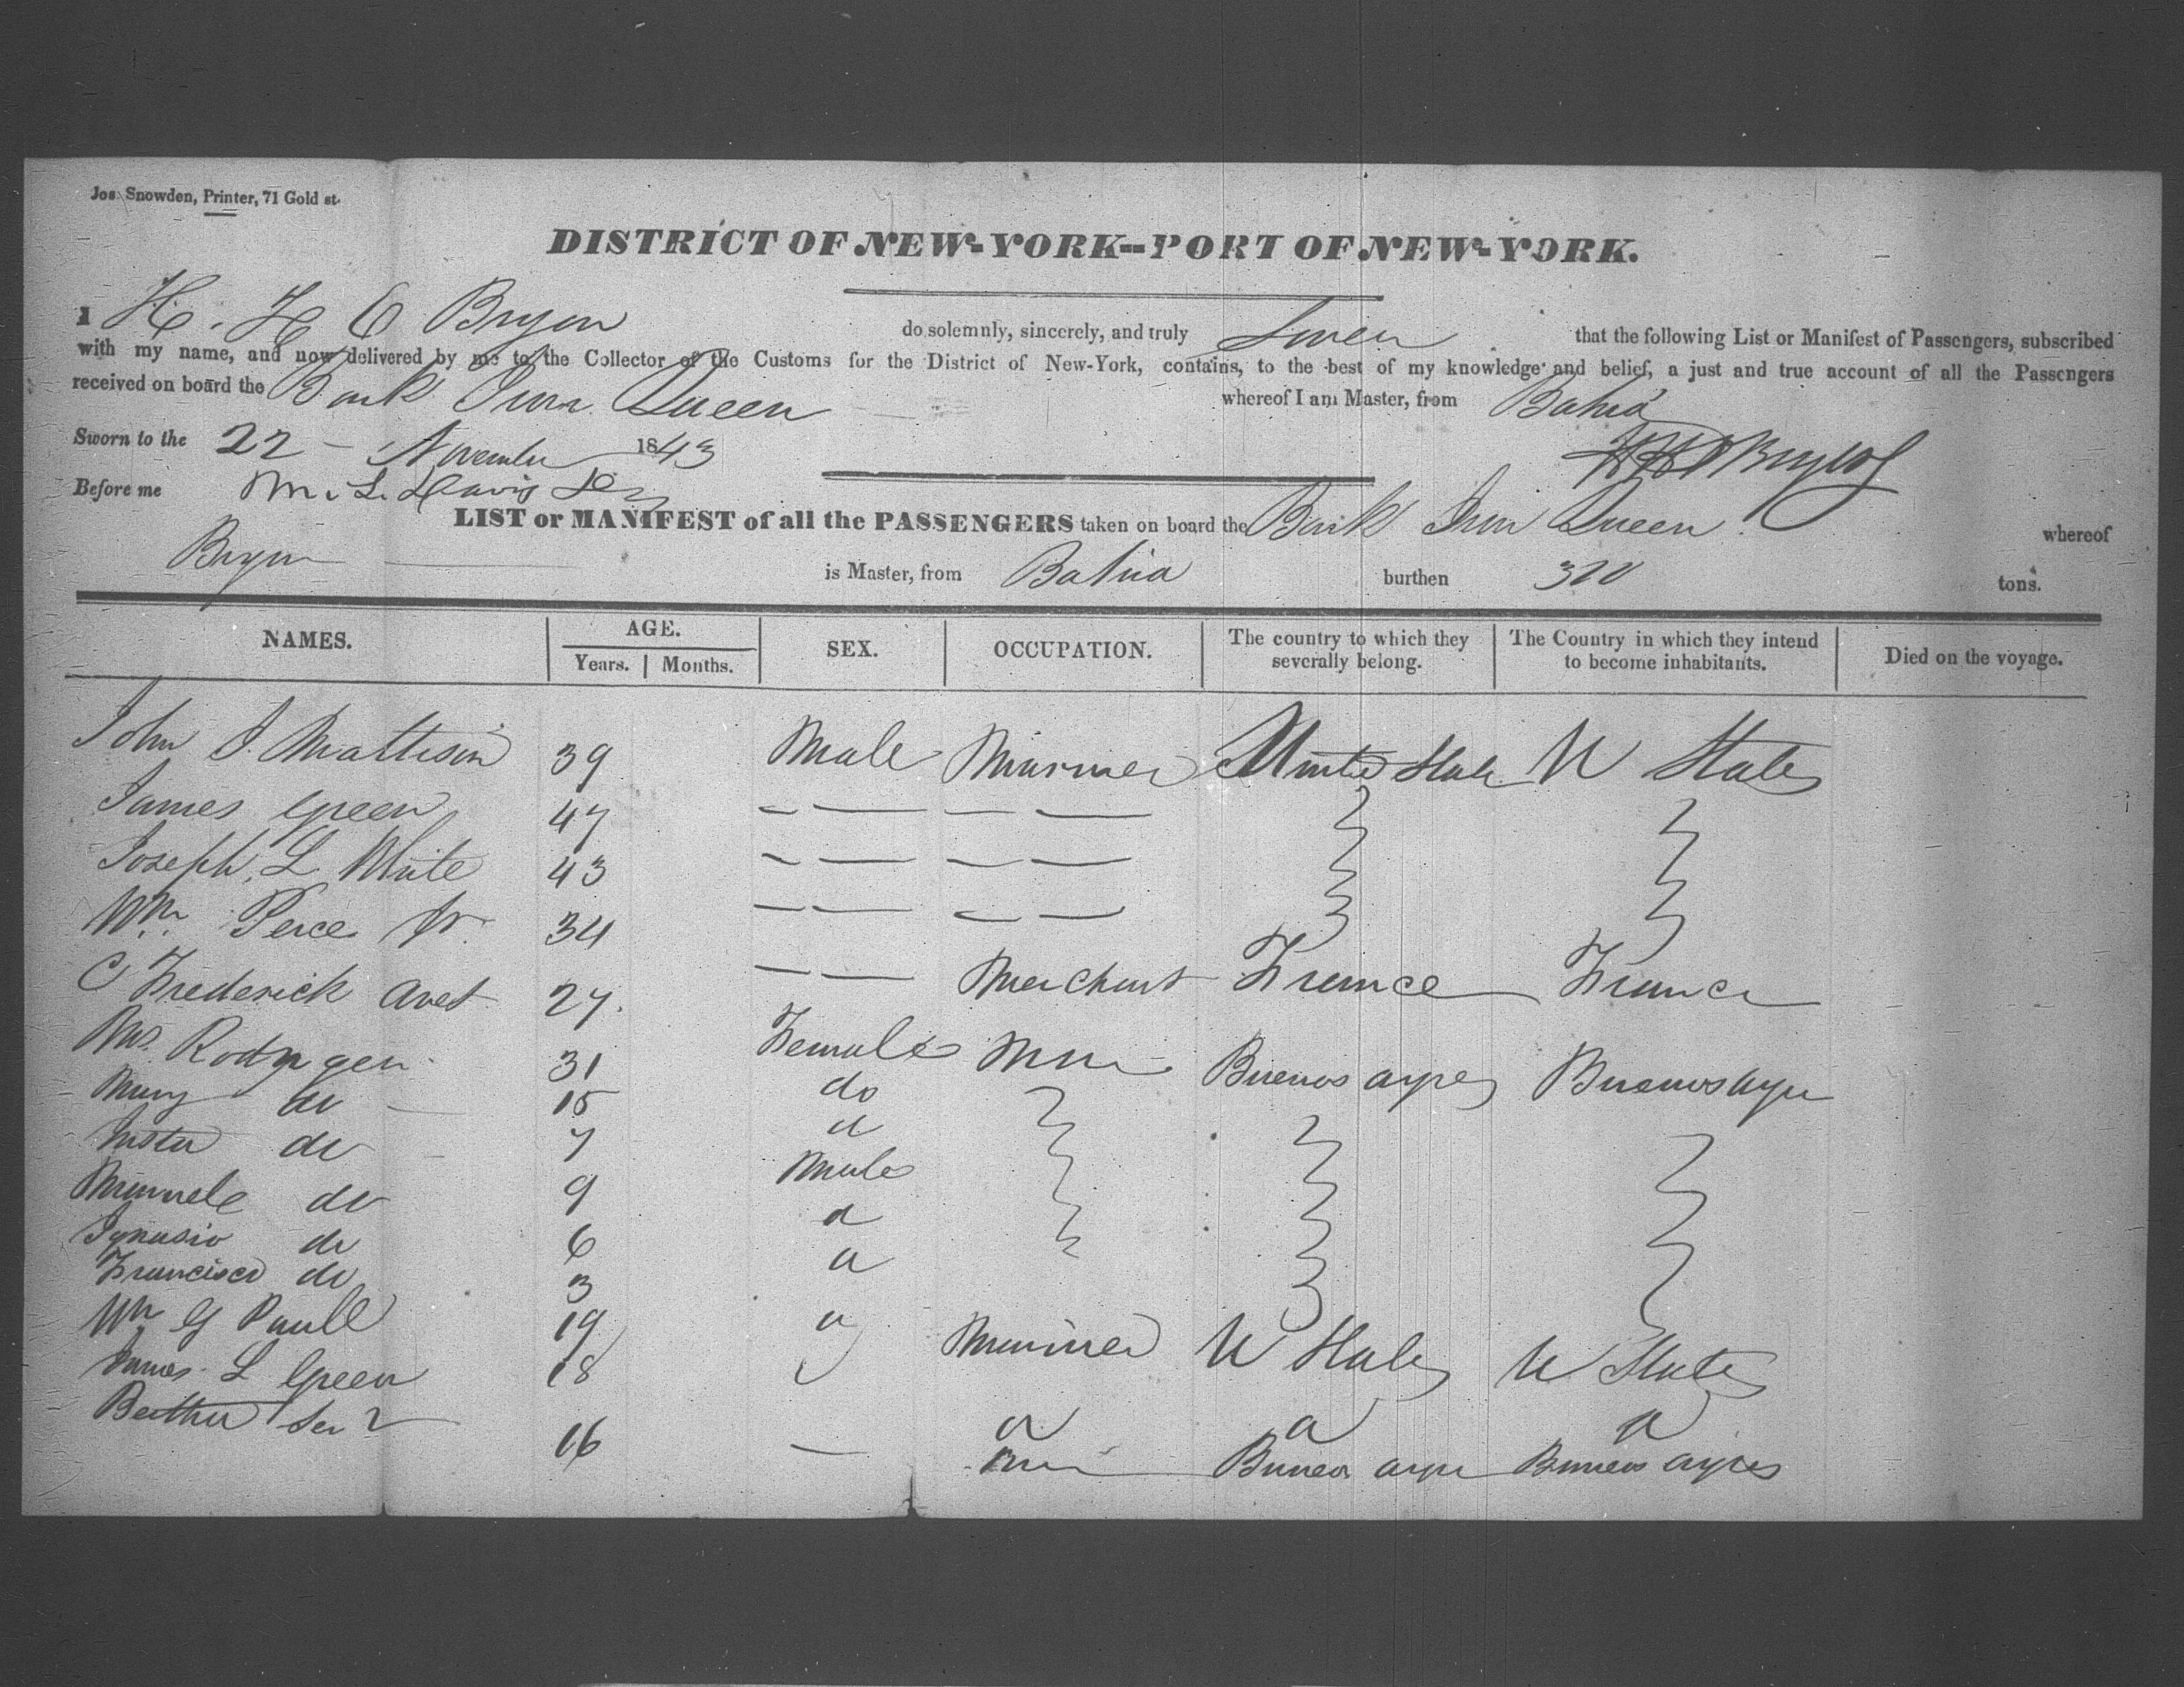 Jos. Snowden, Printer, 71 Gold st.
DISTRICT OF NEW-YORK--PORT OF NEW-YORK.
I H. H. C Bryon do solemnly, sincerely, and truly Swear that the following List or Manifest of Passengers, subscribed
with my name, and now delivered by me to the Collector of the Customs for the District of New-York, contains, to the best of my knowledge and belief, a just and true account of all the Passengers
received on board the Bark Queen whereof I am Master, from Bahia
Sworn to the 22 - November 1843
Before me M. L. Davis
LIST or MANIFEST of all the PASSENGERS taken on board the Bark Queen whereof
Bryon is Master, from Bahia burthen 320 tons.
NAMES. AGE. SEX. OCCUPATION. The country to which they severally belong. The Country in which they intend to become inhabitants. Died on the voyage.
Years. Months.
John J. Mattison 39 Male Mariner United States U States
James Green 47
Joseph L White 43
Wm. Perce Jr. 34
C Frederick Avet 27. Merchant France France
Mrs. 31 Female Buenos ayres Buenos ayre
Mary do 15 do
do 7 do
Manuele do 9 Male
Ignasio do 6 do
Francisco do 3 do
Wm G Paull 19 do Mariner U States U States
James L Green 18
16 do do do
Buenos ayre Buenos ayres